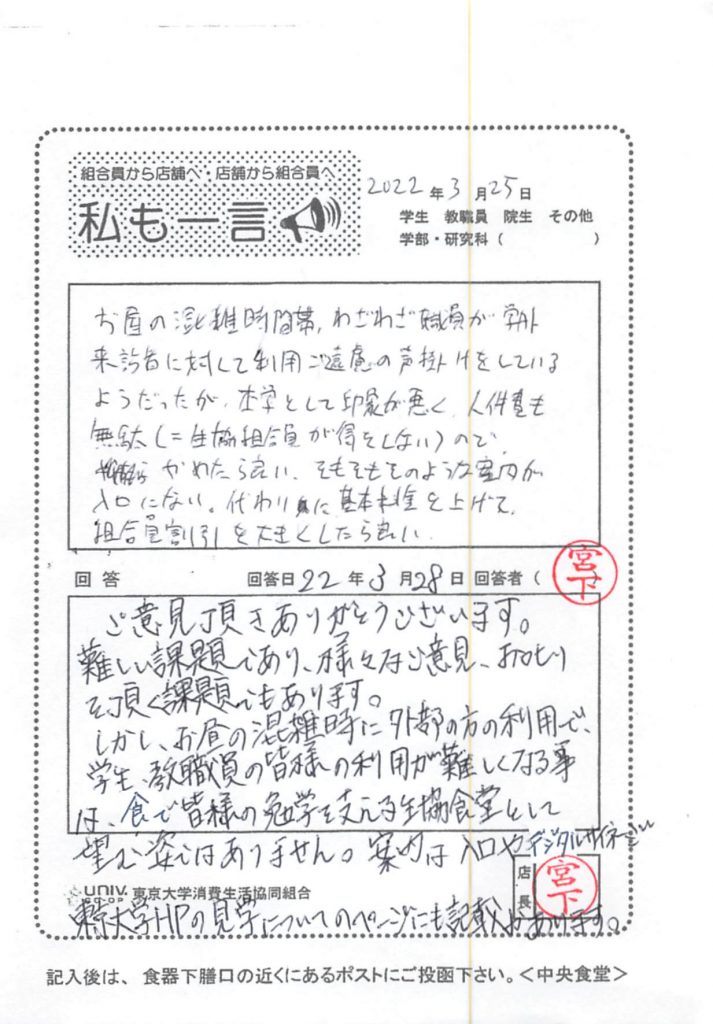 組合員から店舗へ・店舗から組合員へ
私も一言
2022年3月25日
学生 教職員 院生 その他
学部・研究科( )
お昼の混雑時間帯、わざわざ職員が学外
来訪者に対して利用ご遠慮の声掛けをしている
ようだったが、本学として印象が悪く、人件費も
無駄(=生協組合員が得をしない)ので、
やめたら良い。そもそもそのような案内が
入口にない。代わりに基本料金を上げて、
組合員割引を大きくしたら良い。
回答 回答日 22年3月28日 回答者( 宮下 )
ご意見頂きありがとうございます。
難しい課題であり、様々なご意見、お叱り
を頂く課題でもあります。
しかし、お昼の混雑時に外部の方の利用で、
学生、教職員の皆様の利用が難しくなる事
は、食で皆様の勉学を支える生協食堂として
望む姿ではありません。案内は入口やデジタルサイネージ
UNIV. CO-OP 東京大学消費生活協同組合
店長 宮下
東京大学HPの見学についてのページにも記載があります。
記入後は、食器下膳口の近くにあるポストにご投函下さい。<中央食堂>